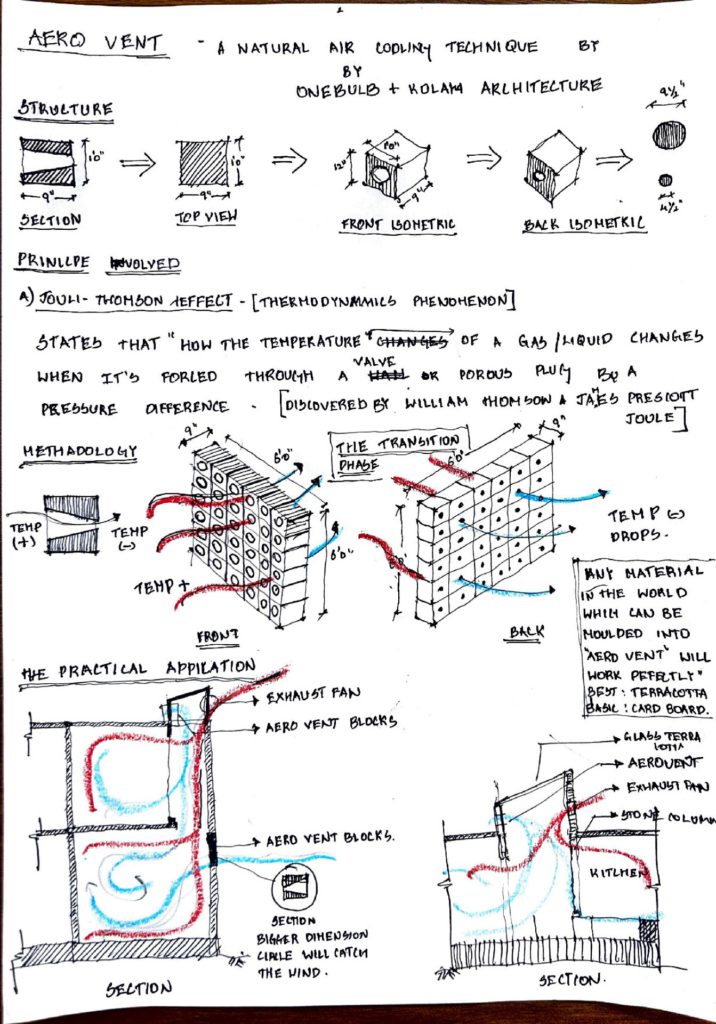 AERO VENT - A NATURAL AIR COOLING TECHNIQUE BY
BY
ONEBULB + KOLAM ARCHITECTURE
STRUCTURE
1'0"
9"
SECTION
1'0"
9"
TOP VIEW
12"
9"
FRONT ISOMETRIC
BACK ISOMETRIC
PRINLLPE INVOLVED
A) JOULI- THOMSON AEFFECT - [THERMODYNAMMICS PHENOMENON]
STATES THAT "HOW THE TEMPERATURE" CHANGES OF A GAS/LIQUID CHANGES
VALVE
WHEN IT'S FORCED THROUGH A OR POROUS PLUG BY A
PRESSURE DIFFERENCE - [DISCOVERED BY WILLIAM THOMSON & JAMES PRESCOTT
JOULE]
METHADOLOGY
TEMP (+)
TEMP (-)
9"
6'0"
6'0"
TEMP +
FRONT
THE TRANSITION
PHASE
6'0"
9"
BACK
TEMP (-)
DROPS.
ANY MATERIAL
IN THE WORLD
WHICH CAN BE
MOULDED INTO
"AERO VENT" WILL
WORK PEFECTLY"
BEST: TERRACOTTA
BASIC: CARD BOARD.
THE PRACTICAL APPICATION
EXHAUST FAN
AERO VENT BLOCKS
AERO VENT BLOCKS.
SECTION
BIGGER DIMENSION
CIRCLE WILL CATCH
THE WIND.
SECTION
GLASS TERRA
COTTA
AEROVENT
EXHAUST FAN
STONE COLUMN
KITCHEN
SECTION.